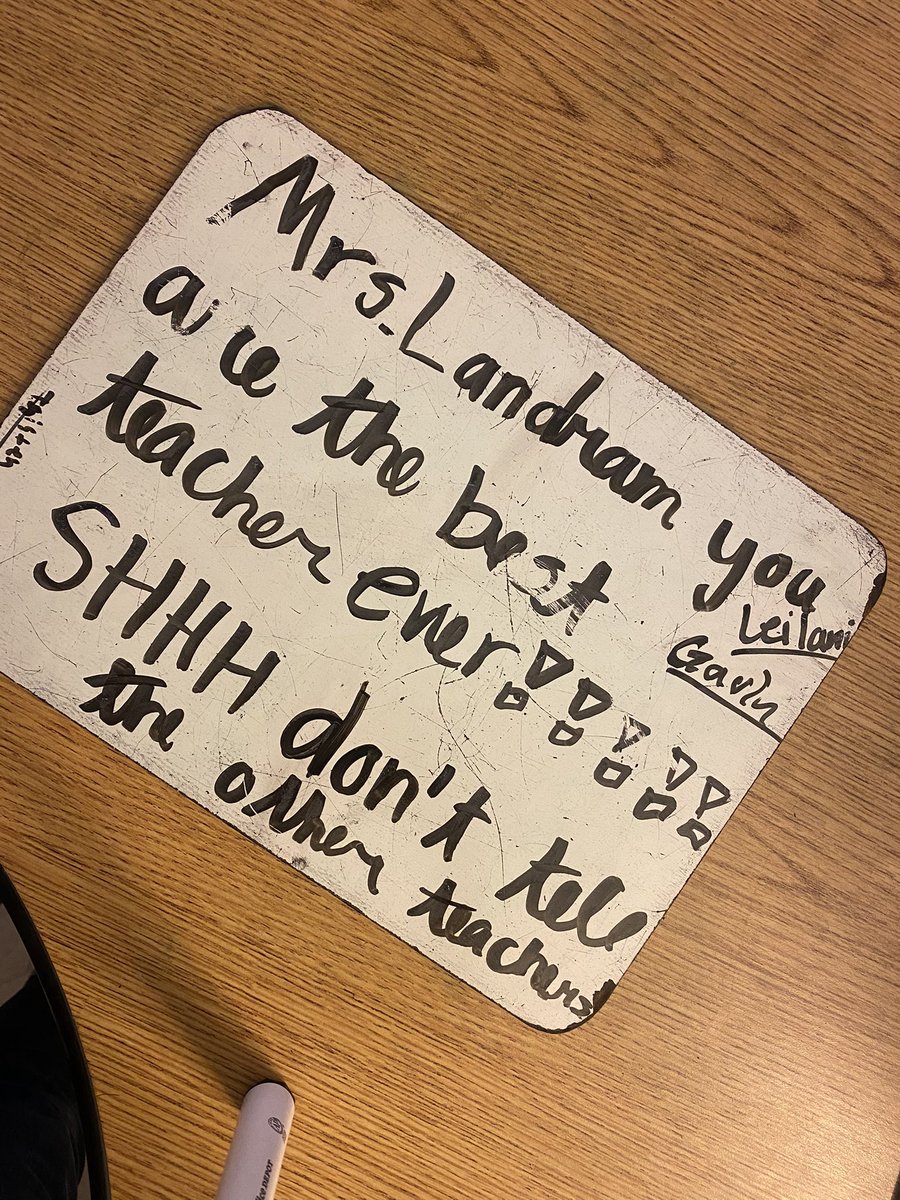 Mrs. Landram you
are the best
teacher ever!!!!!
SHHH don't tell
the other teachers!
Leilani
Gavin